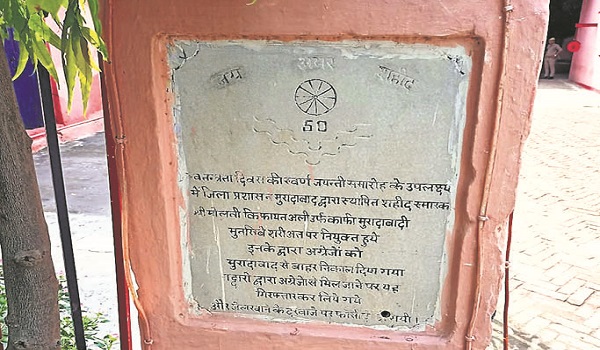 जय अमर शहीद
50
स्वतन्त्रता दिवस की स्वर्ण जयन्ती समारोह के उपलक्ष्य
में जिला प्रशासन मुरादाबाद द्वारा स्थापित शहीद स्मारक
श्री मौलवी किफायत अली उर्फ काफी मुरादाबादी
मुनसिबे शरीअत पर नियुक्त हुये
इनके द्वारा अंग्रेजो को
मुरादाबाद से बाहर निकाल दिया गया
गद्दारो द्वारा अंग्रेजो से मिल जाने पर यह
गिरफ्तार कर लिये गये
और जेलखाने के दरवाजे पर फांसी गयी।